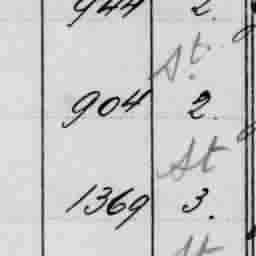 944 2.
St.
904 2.
St
1369 3.
St